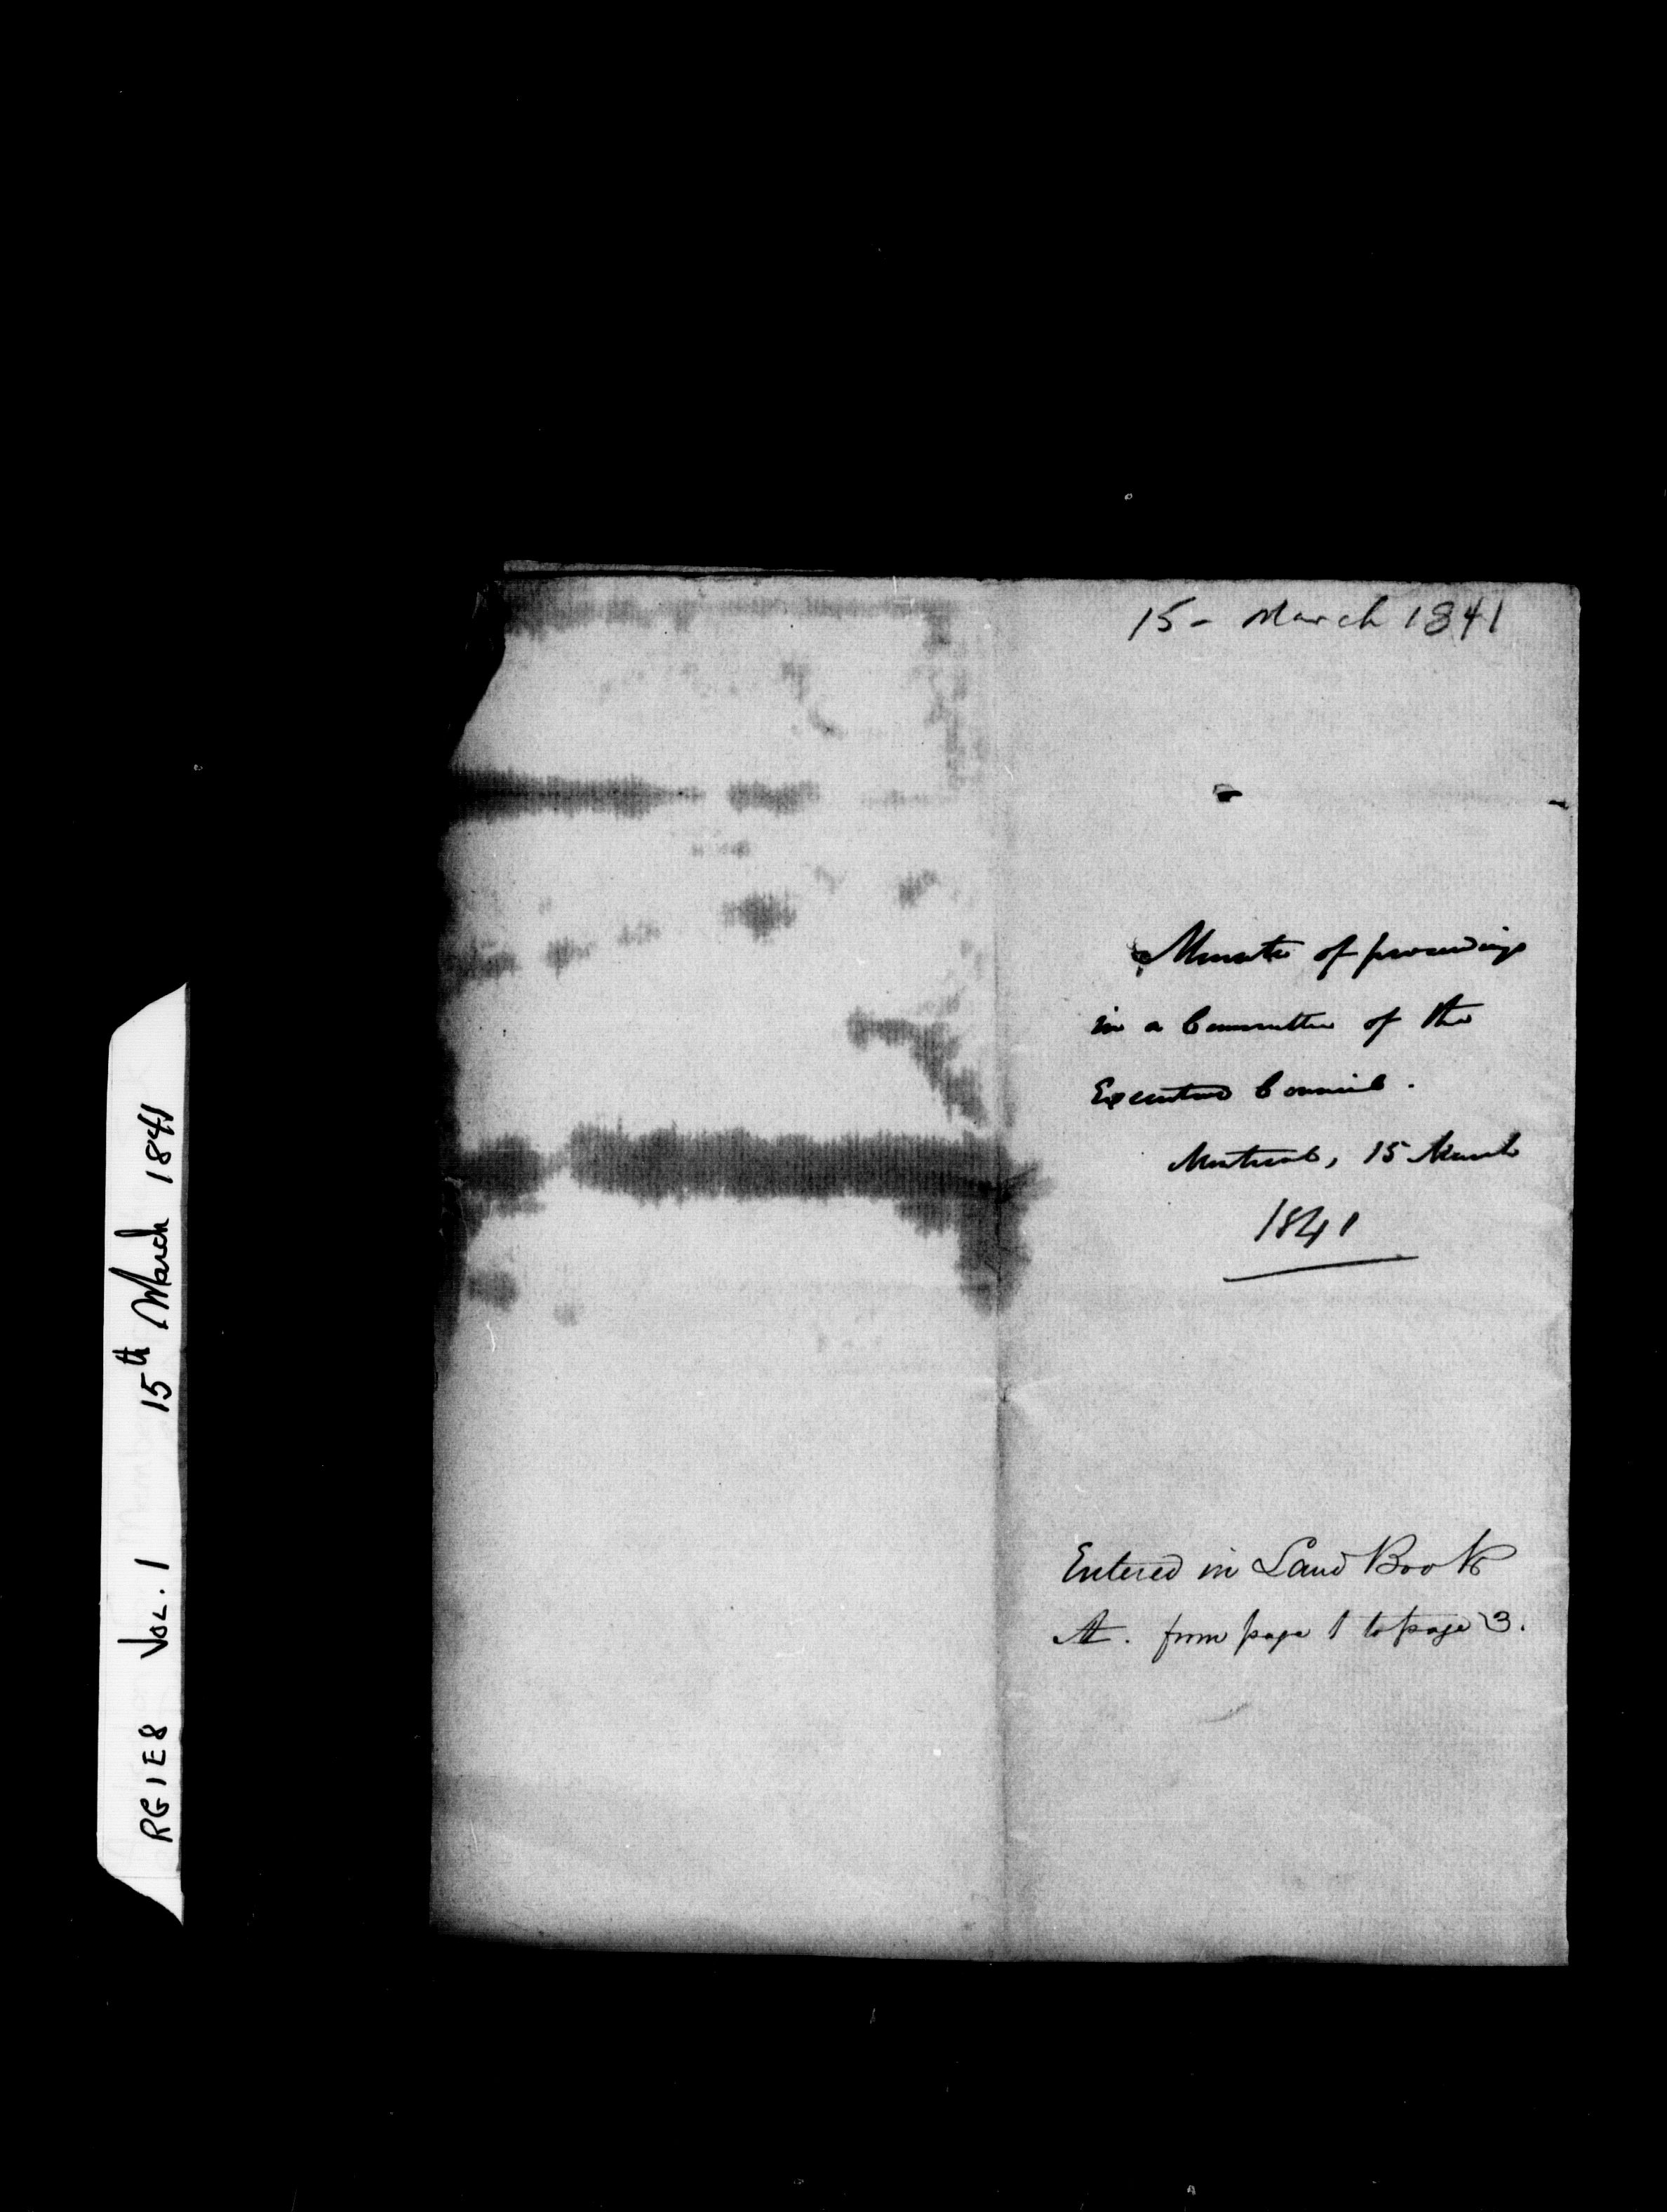 RG1E8 VOL. 1 15th March 1841
15 - March 1841
Minute of proceedings
in a Committee of the
Executive Council.
Montreal, 15 March
1841
Entered in Land Book
A. from page 1 to page 3.